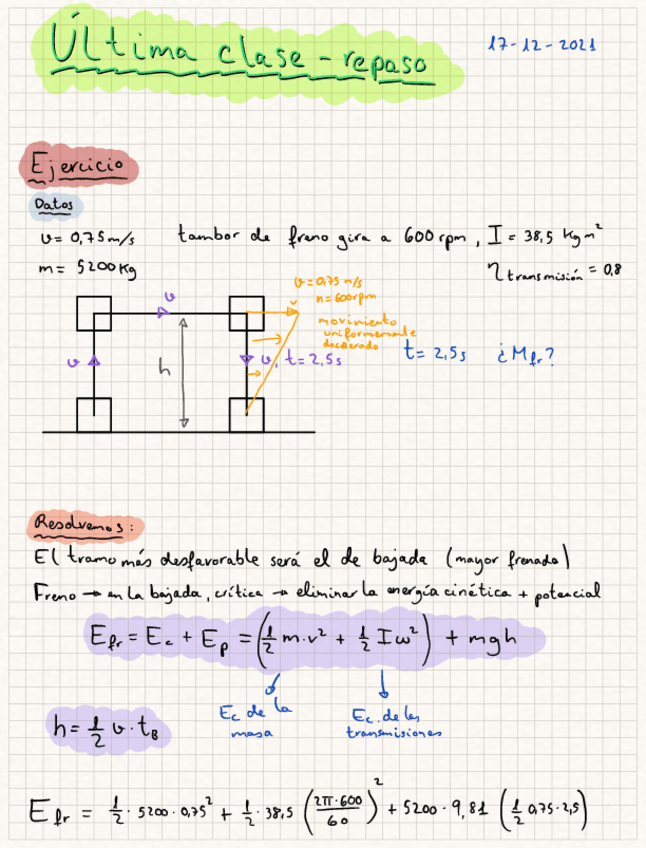 Última clase - repaso
17-12-2021
Ejercicio
Datos
v = 0,75 m/s tambor de freno gira a 600 rpm, I = 38,5 kg m²
m = 5200 kg η transmisión = 0,8
v = 0,75 m/s
n = 600 rpm
v
movimiento
uniformemente
v
v
h
v, t = 2,5 s
t = 2,5 s ¿Mfr?
Resolvemos:
El tramo más desfavorable será el de bajada (mayor frenado)
Freno → en la bajada, crítica → eliminar la energía cinética + potencial
Efr = Ec + Ep = (1/2 m·v² + 1/2 Iω²) + mgh
Ec de la
masa
Ec. de las
transmisiones
h = 1/2 v·tB
Efr = 1/2 · 5200 · 0,75² + 1/2 · 38,5 (2π·600/60)² + 5200 · 9,81 (1/2 0,75·2,5)